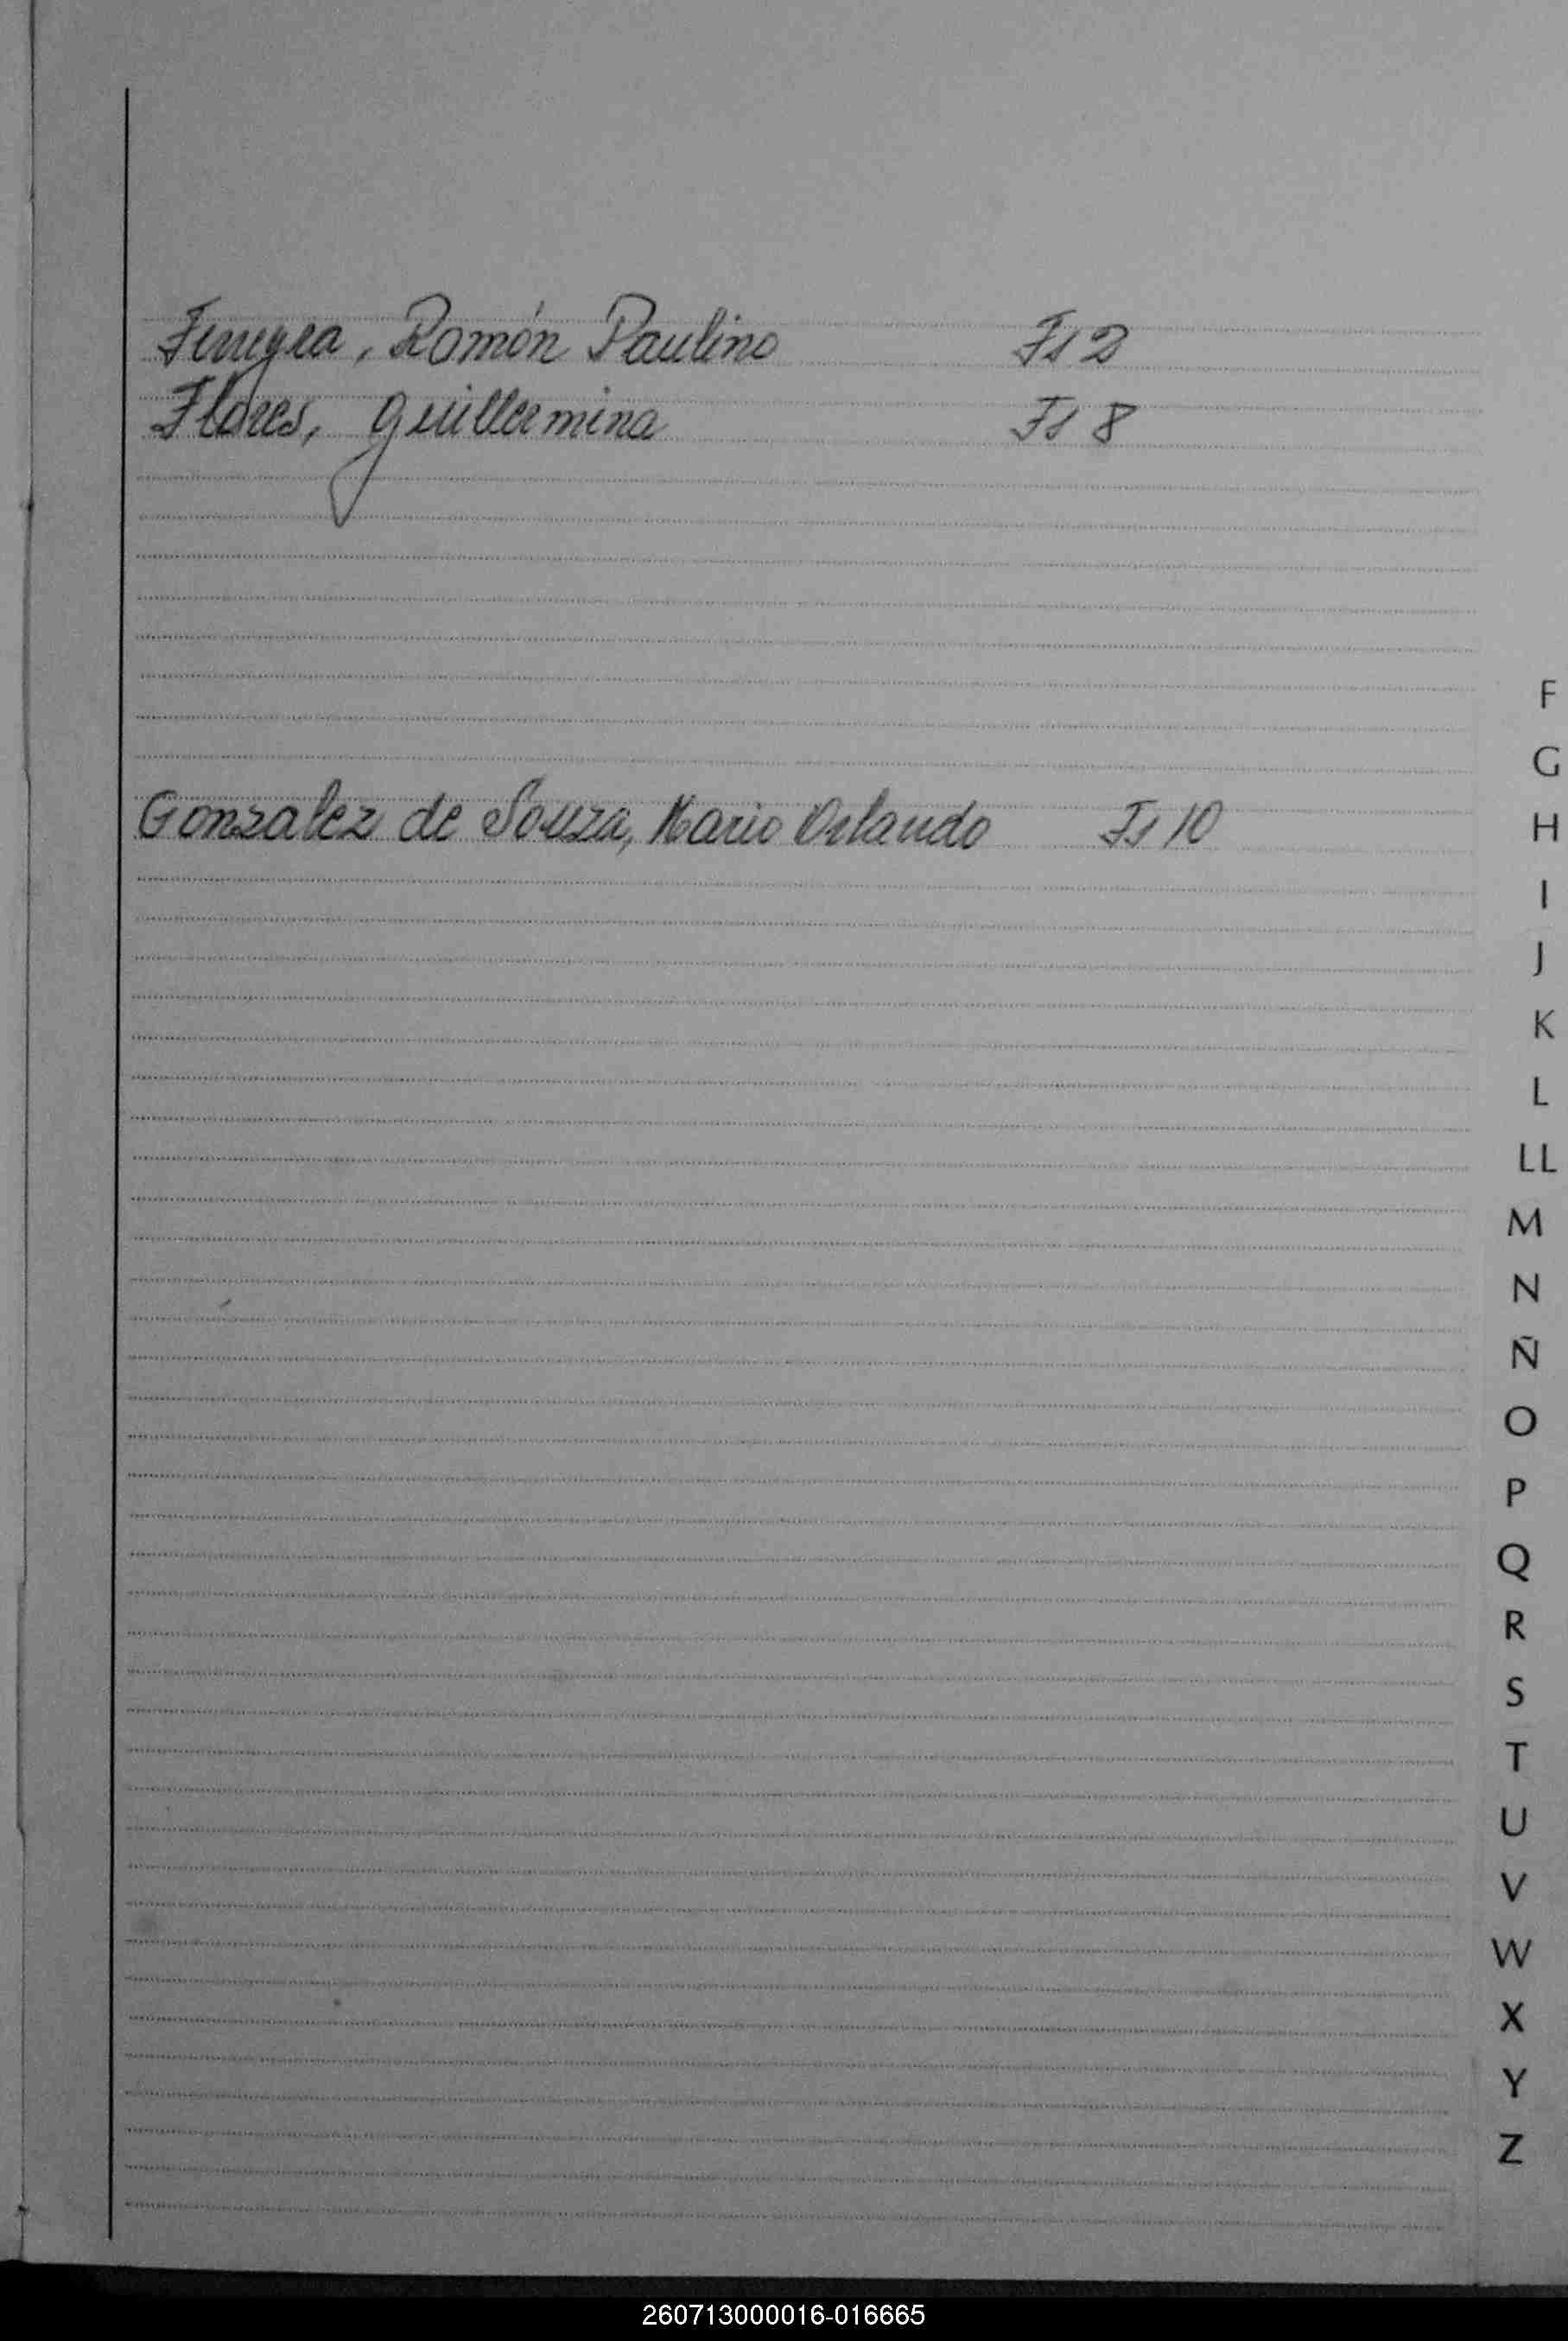 Ferreyra, Ramón Paulino Fs 2
Flores, Guillermina Fs 8
Gonzalez de Souza, Mario Orlando Fs 10
F
G
H
I
J
K
L
LL
M
N
Ñ
O
P
Q
R
S
T
U
V
W
X
Y
Z
260713000016-016665